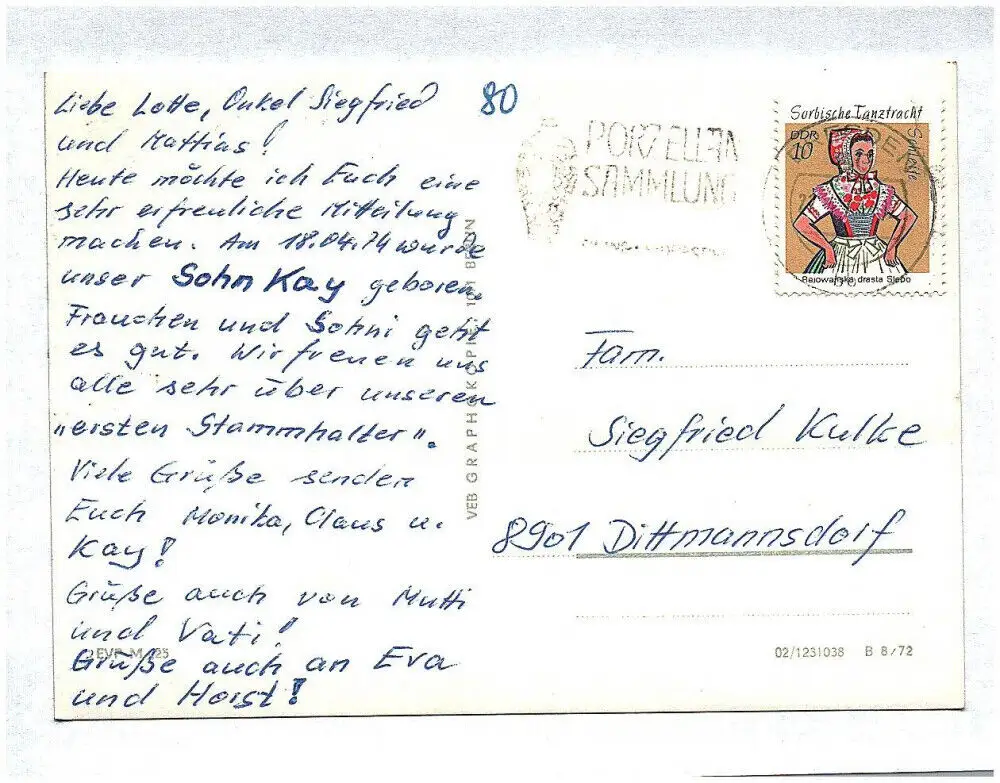 Liebe Lotte, Onkel Siegfried
und Mattias!
Heute möchte ich Euch eine
sehr erfreuliche Mitteilung
machen. Am 18.04.74 wurde
unser Sohn Kay geboren.
Frauchen und Sohni geht
es gut. Wir freuen uns
alle sehr über unseren
„ersten Stammhalter".
Viele Grüße senden
Euch Monika, Claus u.
Kay!
Grüße auch von Mutti
und Vati!
Grüße auch an Eva
und Horst!
EVP M
VEB GRAPHOKOPIE 101 BERLIN
80
PORZELLAN
SAMMLUNG
Sorbische Tanztracht
DDR
10
Schleife
Rejowańska drasta Slepo
Fam.
Siegfried Kulke
8901 Dittmannsdorf
02/1231038 B 8/72